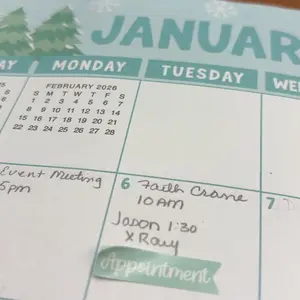 JANUAR
AY MONDAY TUESDAY WE
FEBRUARY 2026
S M T W T F S
1 2 3 4 5 6 7
8 9 10 11 12 13 14
15 16 17 18 19 20 21
22 23 24 25 26 27 28
Event Meeting
5pm
6 Faith Crane
10 AM
Jason 1:30
X Ray
Appointment
7